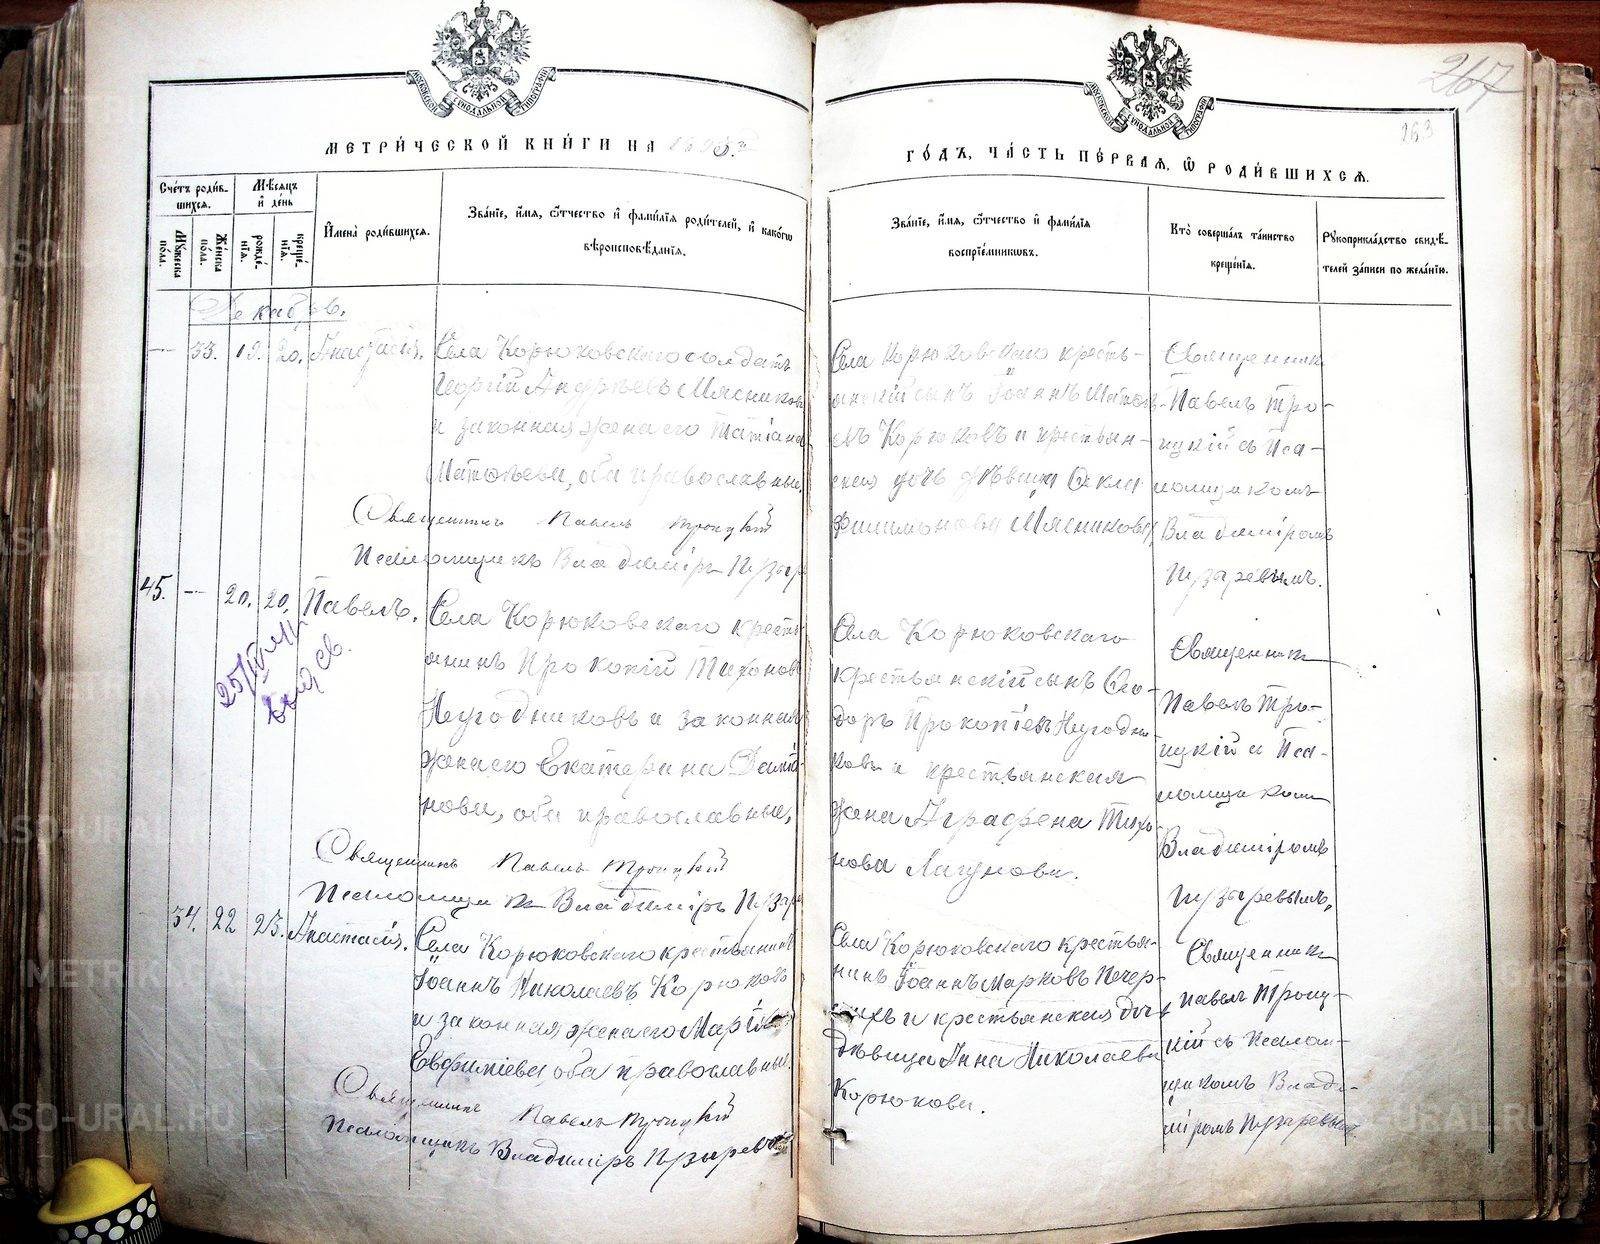 МОСКОВСКОЙ СѴНОДАЛЬНОЙ ТИПОГРАФІИ
МЕТРИ́ЧЕСКОЙ КНИ́ГИ НА
Сче́тъ роди́в-
шихся.
Мѣсяцъ
и҆ де́нь
Мꙋ́жеска
по́ла.
Же́нска
по́ла.
рожде́-
нїѧ.
креще́-
нїѧ.
И҆мена̀ роди́вшихся.
Зва́нїе, и҆́мѧ, ѻ҆́тчество и҆ фами́лїѧ роди́телей, и҆ како́гѡ
вѣроисповѣ́данїѧ.
Декабрь.
— 33. 19. 20. Анастасія. Села Корюковскаго солдатъ
Георгій Андреевъ Мясниковъ
и законная жена его Татіана
Матѳеева, оба православные.
Священникъ Павелъ Троицкій
Псаломщикъ Владиміръ Пузыр
45. — 20. 20. Павелъ. Села Корюковскаго кресть-
янинъ Прокопій Тихоновъ
Негодниковъ и законная
жена его Екатерина Даміа-
нова, оба православные,
Священникъ Павелъ Троицкій
Псаломщикъ Владиміръ Пузыр
34. 22 23. Анастасія. Села Корюковскаго крестьянинъ
Іоаннъ Николаевъ Корюковъ
и законная жена его Марія
Евфиміева, оба православные.
Священникъ Павелъ Троицкій
Псаломщикъ Владиміръ Пузыревъ
МОСКОВСКОЙ СѴНОДАЛЬНОЙ ТИПОГРАФІИ
267
163
ГО́ДЪ, ЧА́СТЬ ПЕ́РВАѦ, Ѡ҆ РОДИ́ВШИХСѦ.
Зва́нїе, и҆́мѧ, ѻ҆́тчество и҆ фами́лїѧ
воспрїе́мникѡвъ.
Кто̀ соверша́лъ та́инство
креще́нїѧ.
Рꙋкоприкла́дство свидѣ́-
телей за́писи по жела́нїю.
Села Корюковскаго кресть-
янскій сынъ Іоаннъ Матѳѣе-
въ Корюковъ и крестьян-
ская дочь дѣвица Ѳекла
Филимонова Мясникова,
Священникъ
Павелъ Тро-
ицкій съ Пса-
ломщикомъ
Владиміромъ
Пузыревымъ.
Села Корюковскаго
крестьянскій сынъ Ѳео-
доръ Прокопіевъ Негодни-
ковъ и крестьянская
жена Аграфена Тихо-
нова Лагунова.
Священникъ
Павелъ Тро-
ицкій и Пса-
ломщикомъ
Владиміромъ
Пузыревымъ,
Села Корюковскаго крестья-
нинъ Іоаннъ Марковъ Печер-
скихъ и крестьянская дочь
дѣвица Анна Николаева
Корюкова.
Священникъ
Павелъ Троиц-
кій съ Псалом-
щикомъ Влади-
міромъ Пузыревымъ.